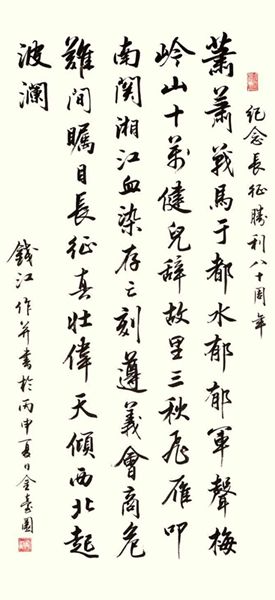 纪念長征勝利八十周年
蕭蕭戰馬于都水郁郁軍聲梅
岭山十萬健兒辭故里三秋飛雁叩
南関湘江血染存亡刻遵義會商危
難間矚目長征真壯偉天傾西北起
波瀾
錢江作并書於丙申夏日金臺園